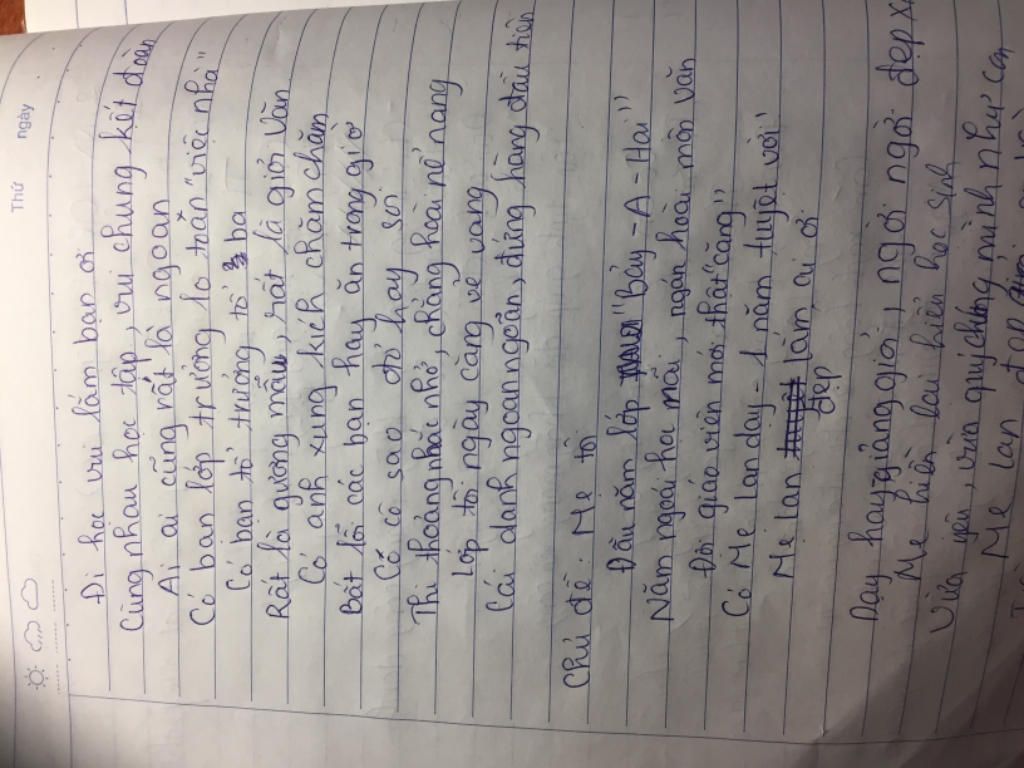 Thứ ngày
Đi học vui lắm bạn ơi
Cùng nhau học tập, vui chung kết đoàn
Ai ai cũng rất là ngoan
Có bạn lớp trưởng lo toan "việc nhà"
Có bạn tổ trưởng tổ ba
Rất là gương mẫu, rất là giỏi Văn
Có anh xung kích chăm chăm
Bắt lỗi các bạn hay ăn trong giờ
Có cô sao đỏ hay soi
Thi thoảng nhắc nhở, chẳng hoài nể nang
Lớp tôi ngày càng vẻ vang
Cái danh ngoan ngoãn, đứng hàng đầu tiên
Chủ đề: Mẹ tôi
Đầu năm lớp "Bảy - A - Hai"
Năm ngoái hai mãi, ngán hoài môn Văn
Đổi giáo viên mới "thật căng"
Có Mẹ Lan dạy - 1 năm tuyệt vời
Mẹ Lan đẹp lắm ai ơi
Dạy hay giảng giỏi, ngời ngời đẹp
Mẹ hiền hay hiểu học sinh
Vừa yêu, vừa quý chúng mình như con
Mẹ Lan đẹp